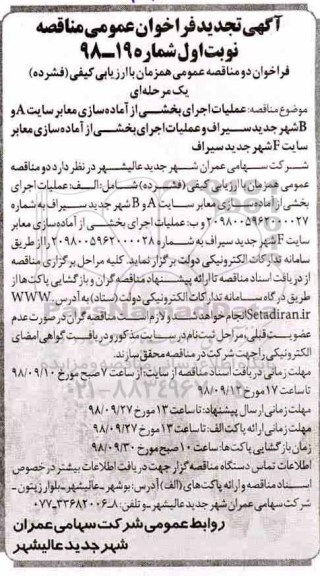 آگهی تجدید فراخوان عمومی مناقصه
نوبت اول شماره ۱۹-۹۸
فراخوان دو مناقصه عمومی همزمان با ارزیابی کیفی (فشرده)
یک مرحله ای
موضوع مناقصه: عملیات اجرای بخشی از آماده سازی معابر سایت A و
B شهر جدید سیراف و عملیات اجرای بخشی از آماده سازی معابر
سایت F شهر جدید سیراف
شرکت سهامی عمران شهر جدید عالیشهر در نظر دارد دو مناقصه
عمومی همزمان با ارزیابی کیفی (فشرده) شامل: الف: عملیات اجرای
بخشی از آماده سازی معابر سایت A و B شهر جدید سیراف به شماره
۲۰۹۸۰۰۵۹۶۲۰۰۰۰۲۷ و ب: عملیات اجرای بخشی از آماده سازی معابر
سایت F شهر جدید سیراف به شماره ۲۰۹۸۰۰۵۹۶۲۰۰۰۰۲۸ را از طریق
سامانه تدارکات الکترونیکی دولت برگزار نماید. کلیه مراحل برگزاری مناقصه
از دریافت اسناد مناقصه تا ارائه پیشنهاد مناقصه گران و بازگشایی پاکت ها از
طریق درگاه سامانه تدارکات الکترونیکی دولت (ستاد) به آدرس WWW.
Setadiran.ir انجام خواهد شد و لازم است مناقصه گران در صورت عدم
عضویت قبلی، مراحل ثبت نام در سایت مذکور و دریافت گواهی امضای
الکترونیکی را جهت شرکت در مناقصه محقق سازند.
مهلت زمانی دریافت اسناد مناقصه از سایت: از ساعت ۷ صبح مورخ ۹۸/۰۹/۱۰
تا ساعت ۱۷ مورخ ۹۸/۰۹/۱۲
مهلت زمانی ارسال پیشنهاد: تا ساعت ۱۳ مورخ ۹۸/۰۹/۲۷
مهلت زمانی ارائه پاکت الف: تا ساعت ۱۳ مورخ ۹۸/۰۹/۲۷
زمان بازگشایی پاکت ها: ساعت ۱۰ صبح مورخ ۹۸/۰۹/۳۰
اطلاعات تماس دستگاه مناقصه گزار جهت دریافت اطلاعات بیشتر در خصوص
اسناد مناقصه و ارائه پاکت های (الف) آدرس: بوشهر-عالیشهر-بلوار زیتون-
شرکت سهامی عمران شهر جدید عالیشهر-و تلفن: ۸-۳۳۶۸۲۰۰۶-۰۷۷
روابط عمومی شرکت سهامی عمران
شهر جدید عالیشهر